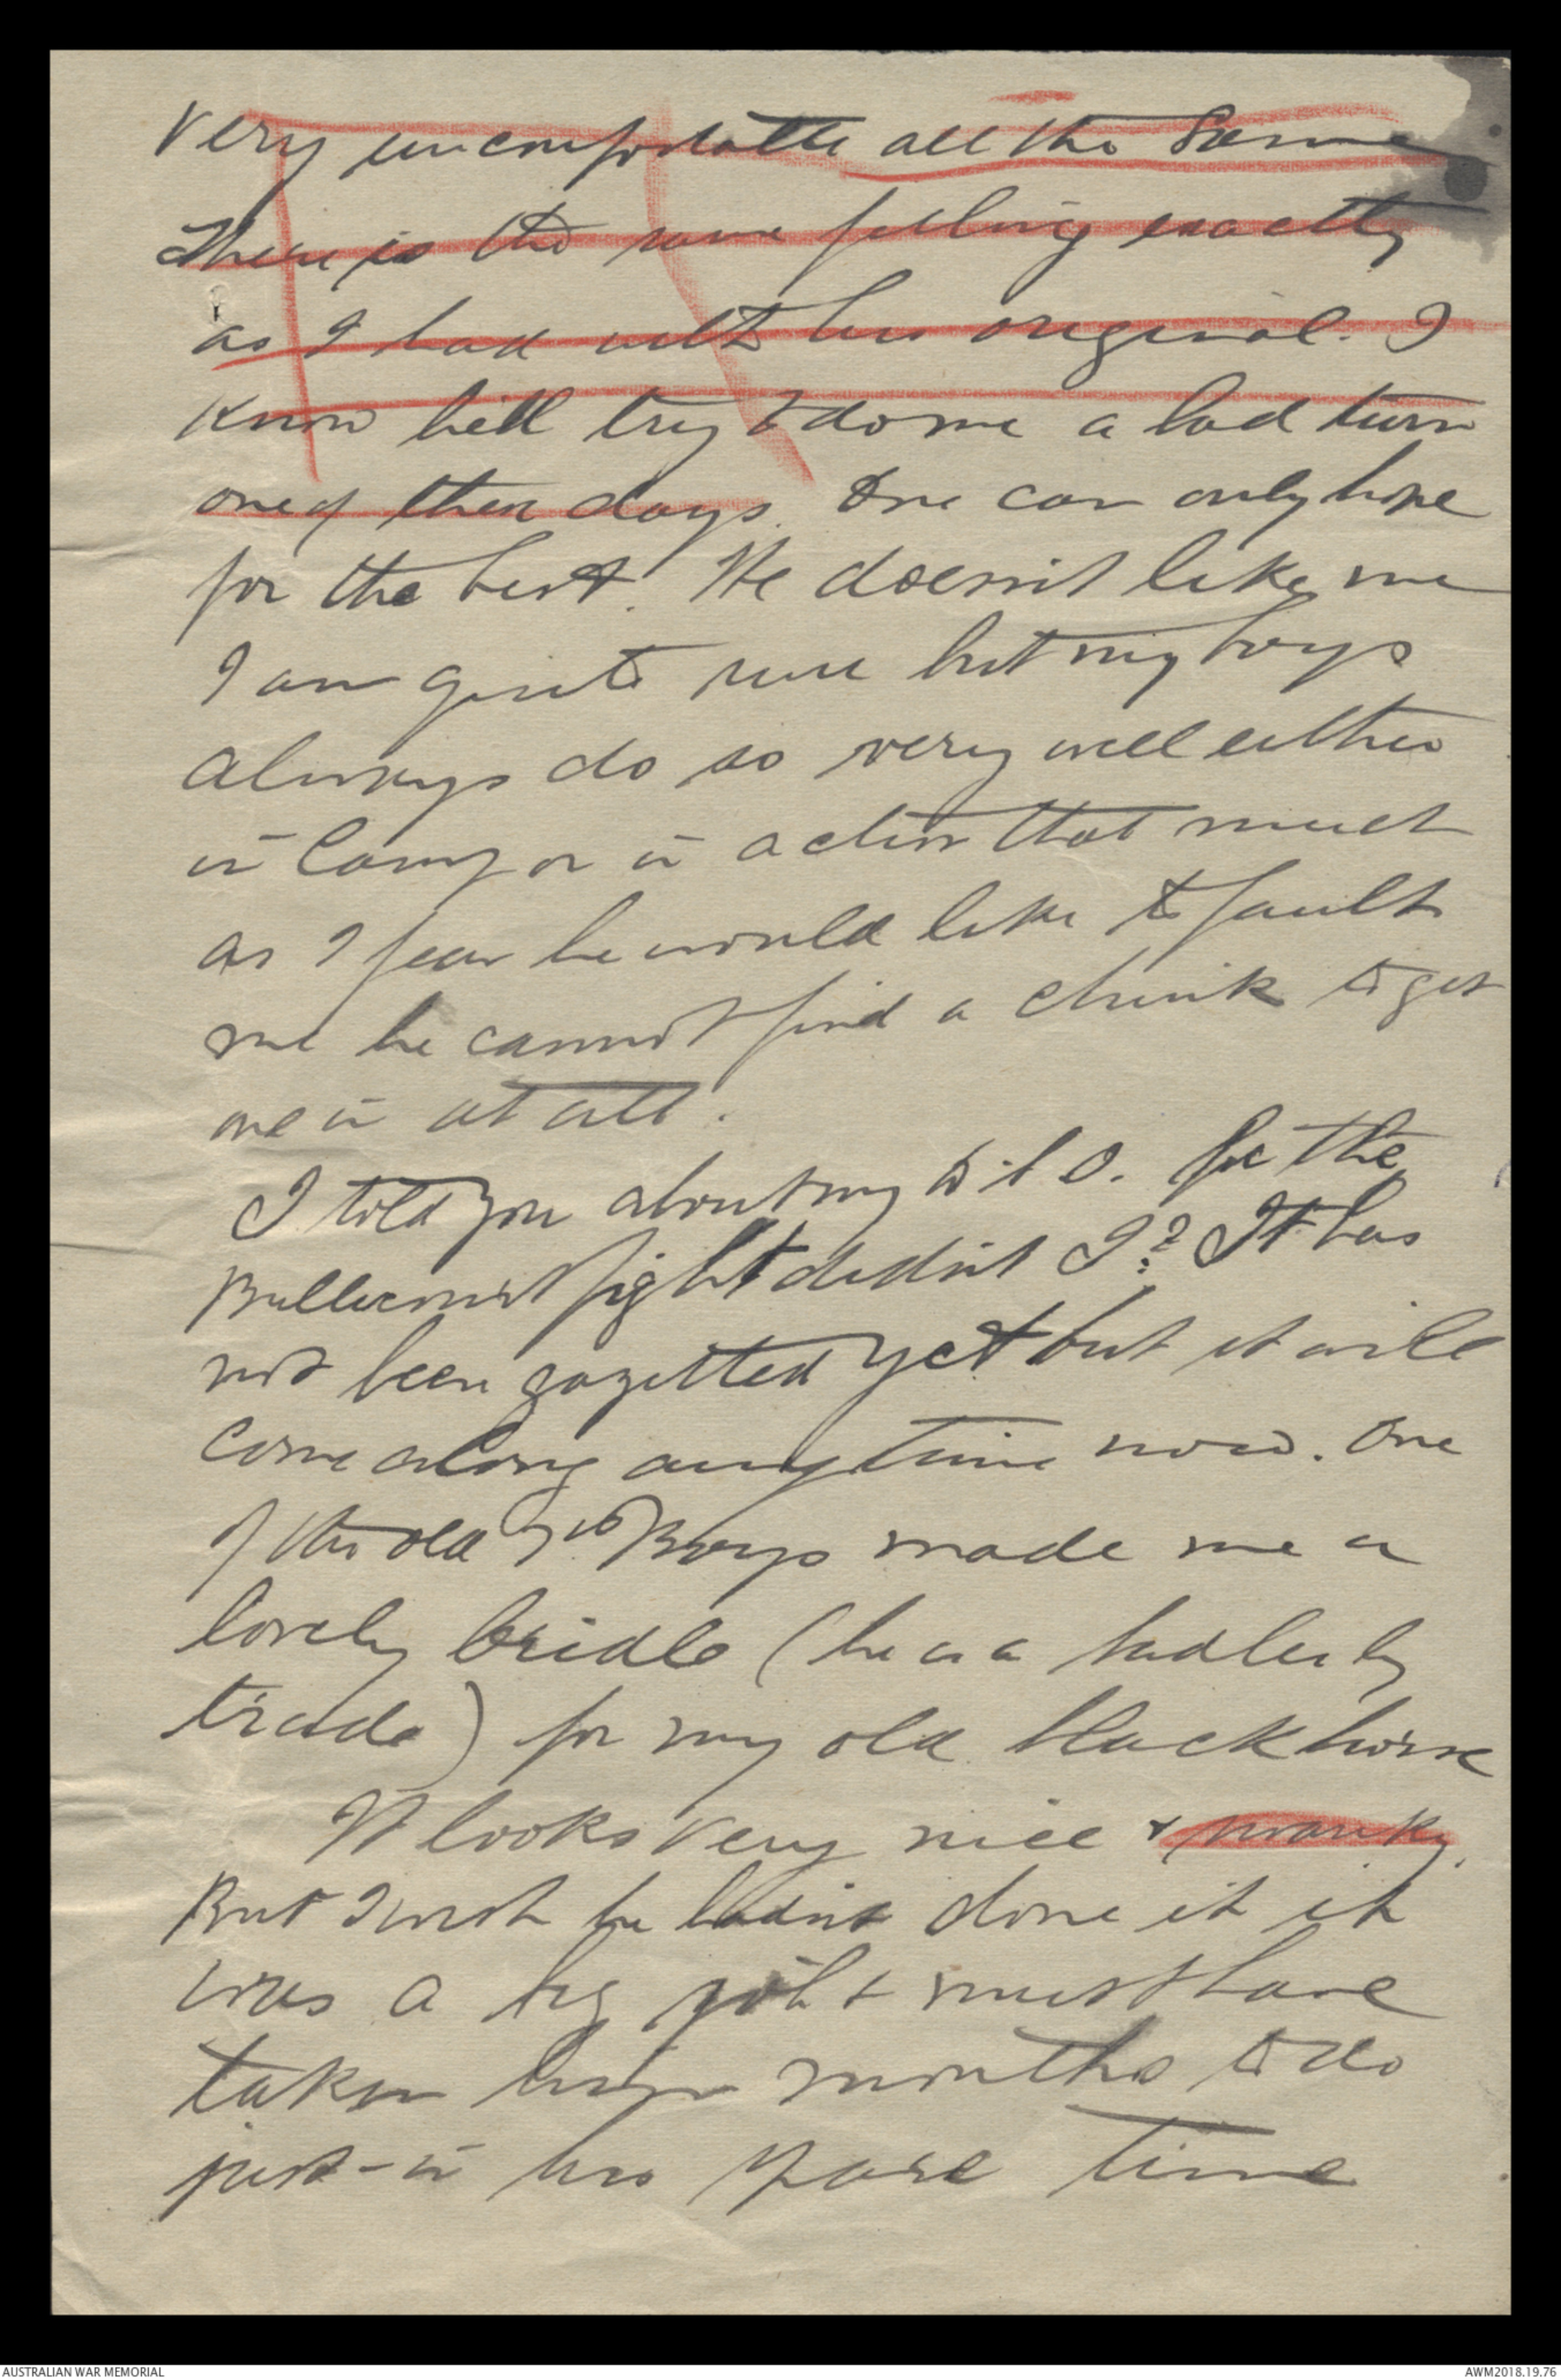 Very uncomfortable all the same
There is the same feeling exactly
as I had with his original. I
know he'll try to do me a bad turn
one of these days. One can only hope
for the best. He doesn't like me
I am quite sure but my boys
always do so very well either
in Camp or in action that much
as I fear he would like to fault
me he cannot find a chink to get
me in at all.
I told you about my D.S.O. for the
Bullecourt fight didn't I? It has
not been gazetted yet but it will
come along anytime now. One
of the old 7th Boys made me a
lovely bridle (he is a sadler by
trade) for my old black horse
It looks very nice & swanky.
But I wish he hadn't done it it
was a big job & must have
taken him months to do
just in his spare time
AUSTRALIAN WAR MEMORIAL
AWM2018.19.76